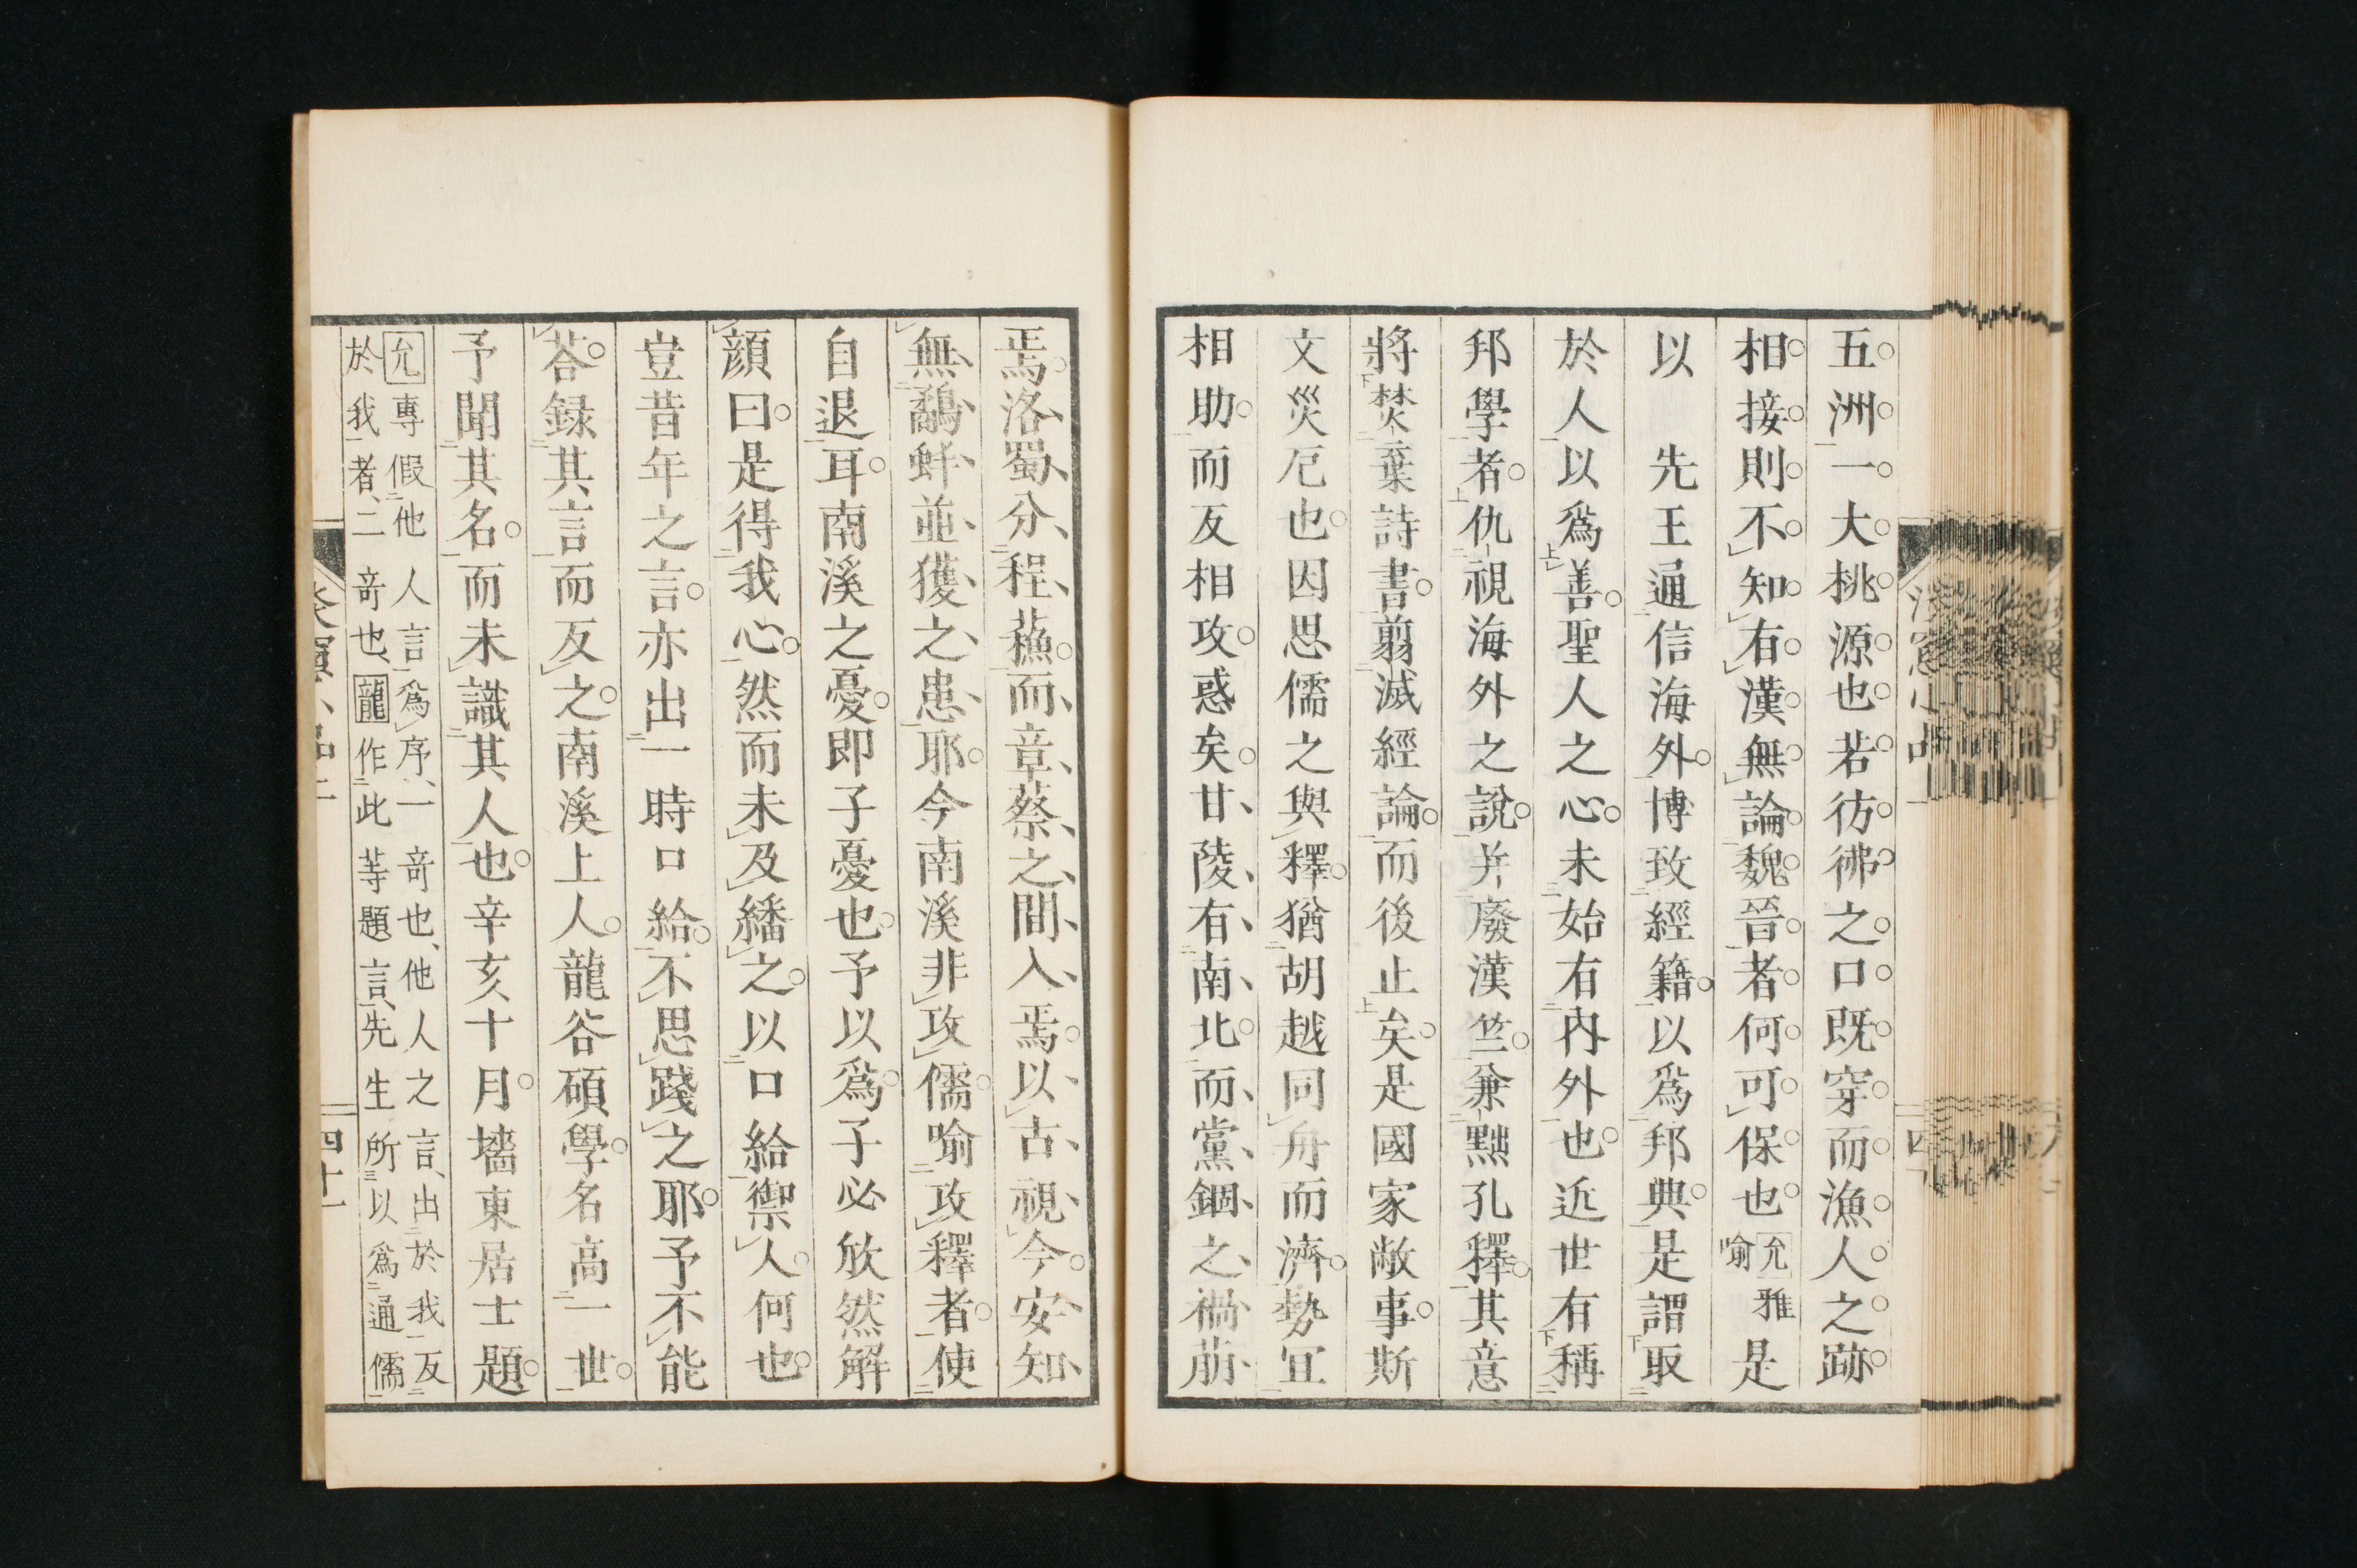 五洲一大桃源也若彷彿之口既穿而漁人之跡
相接則不知有漢無論魏晉者何可保也允雅喻是
以　先王通信海外博攷經籍以爲邦典是謂取
於人以爲善聖人之心未始有內外也近世有稱
邦學者仇視海外之說并廢漢竺兼黜孔釋其意
將焚棄詩書翦滅經論而後止矣是國家敝事斯
文災厄也因思儒之與釋猶胡越同舟而濟勢宜
相助而反相攻惑矣甘陵有南北而黨錮之禍萠
焉洛蜀分程蘓而章蔡之間入焉以古視今安知
無鷸蚌並獲之患耶今南溪非攻儒喻攻釋者使
自退耳南溪之憂即子憂也予以爲子必欣然解
顔曰是得我心然而未及繙之以口給禦人何也
豈昔年之言亦出一時口給不思踐之耶予不能
荅録其言而反之南溪上人龍谷碩學名高一世
予聞其名而未識其人也辛亥十月墻東居士題
允專假他人言爲序一奇也他人之言出於我反
於我者二奇也龍作此等題言先生所以爲通儒
四十一